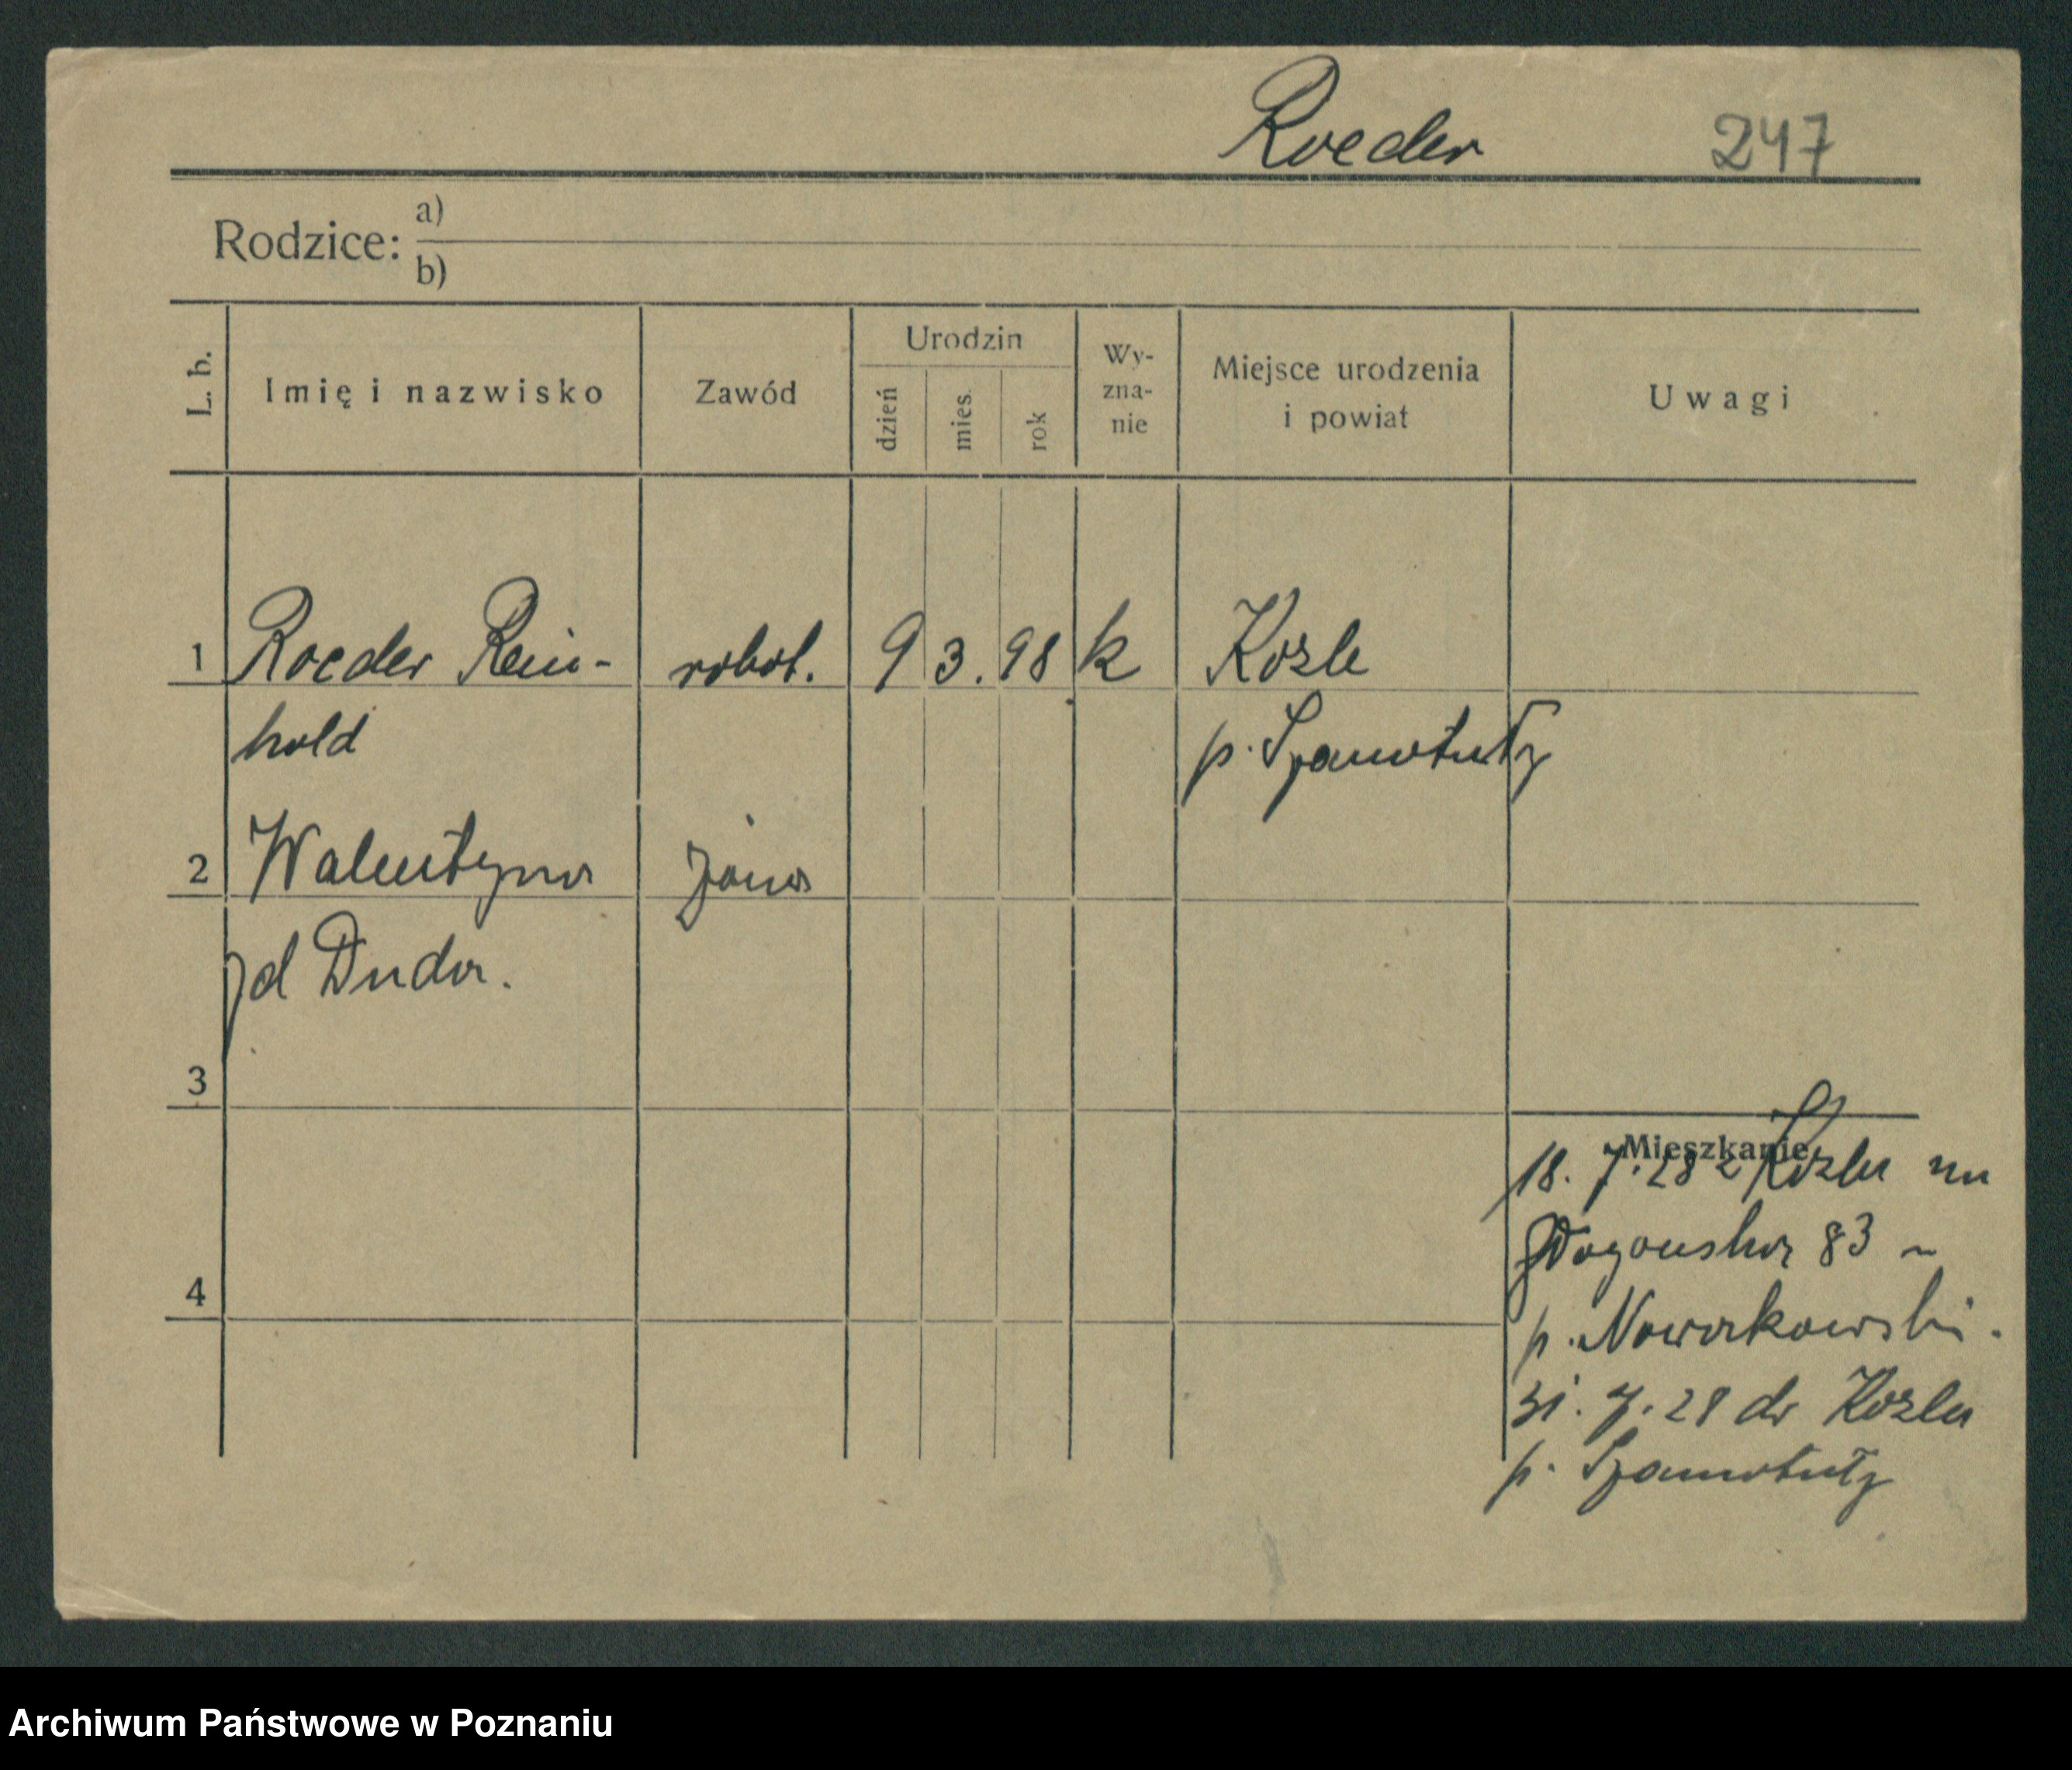 Roeder 247
Rodzice: a)
b)
L. b. Imię i nazwisko Zawód Urodzin dzień mies. rok Wy-zna-nie Miejsce urodzenia i powiat Uwagi
1 Roeder Rein- robot. 9 3. 98 k Kozle
hold p. Szamotuły
2 Walentyna żona
zd Duda.
3
Mieszkanie
18. 7. 28 z Kozla na
Dąbrowska 83 
4
p. Nowakowski.
31. 7. 28 do Kozla
p. Szamotuły
Archiwum Państwowe w Poznaniu